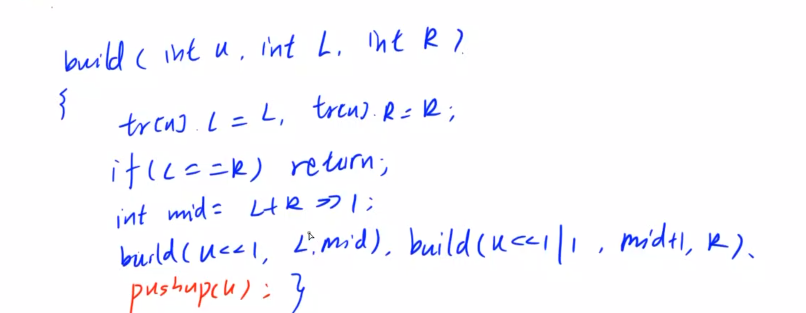 build ( int u, int L, int R )
{
tr[u].L = L, tr[u].R = R;
if(L==R) return;
int mid = L+R >>1;
build(u<<1, L,mid), build(u<<1|1, mid+1, R),
pushup(u); }